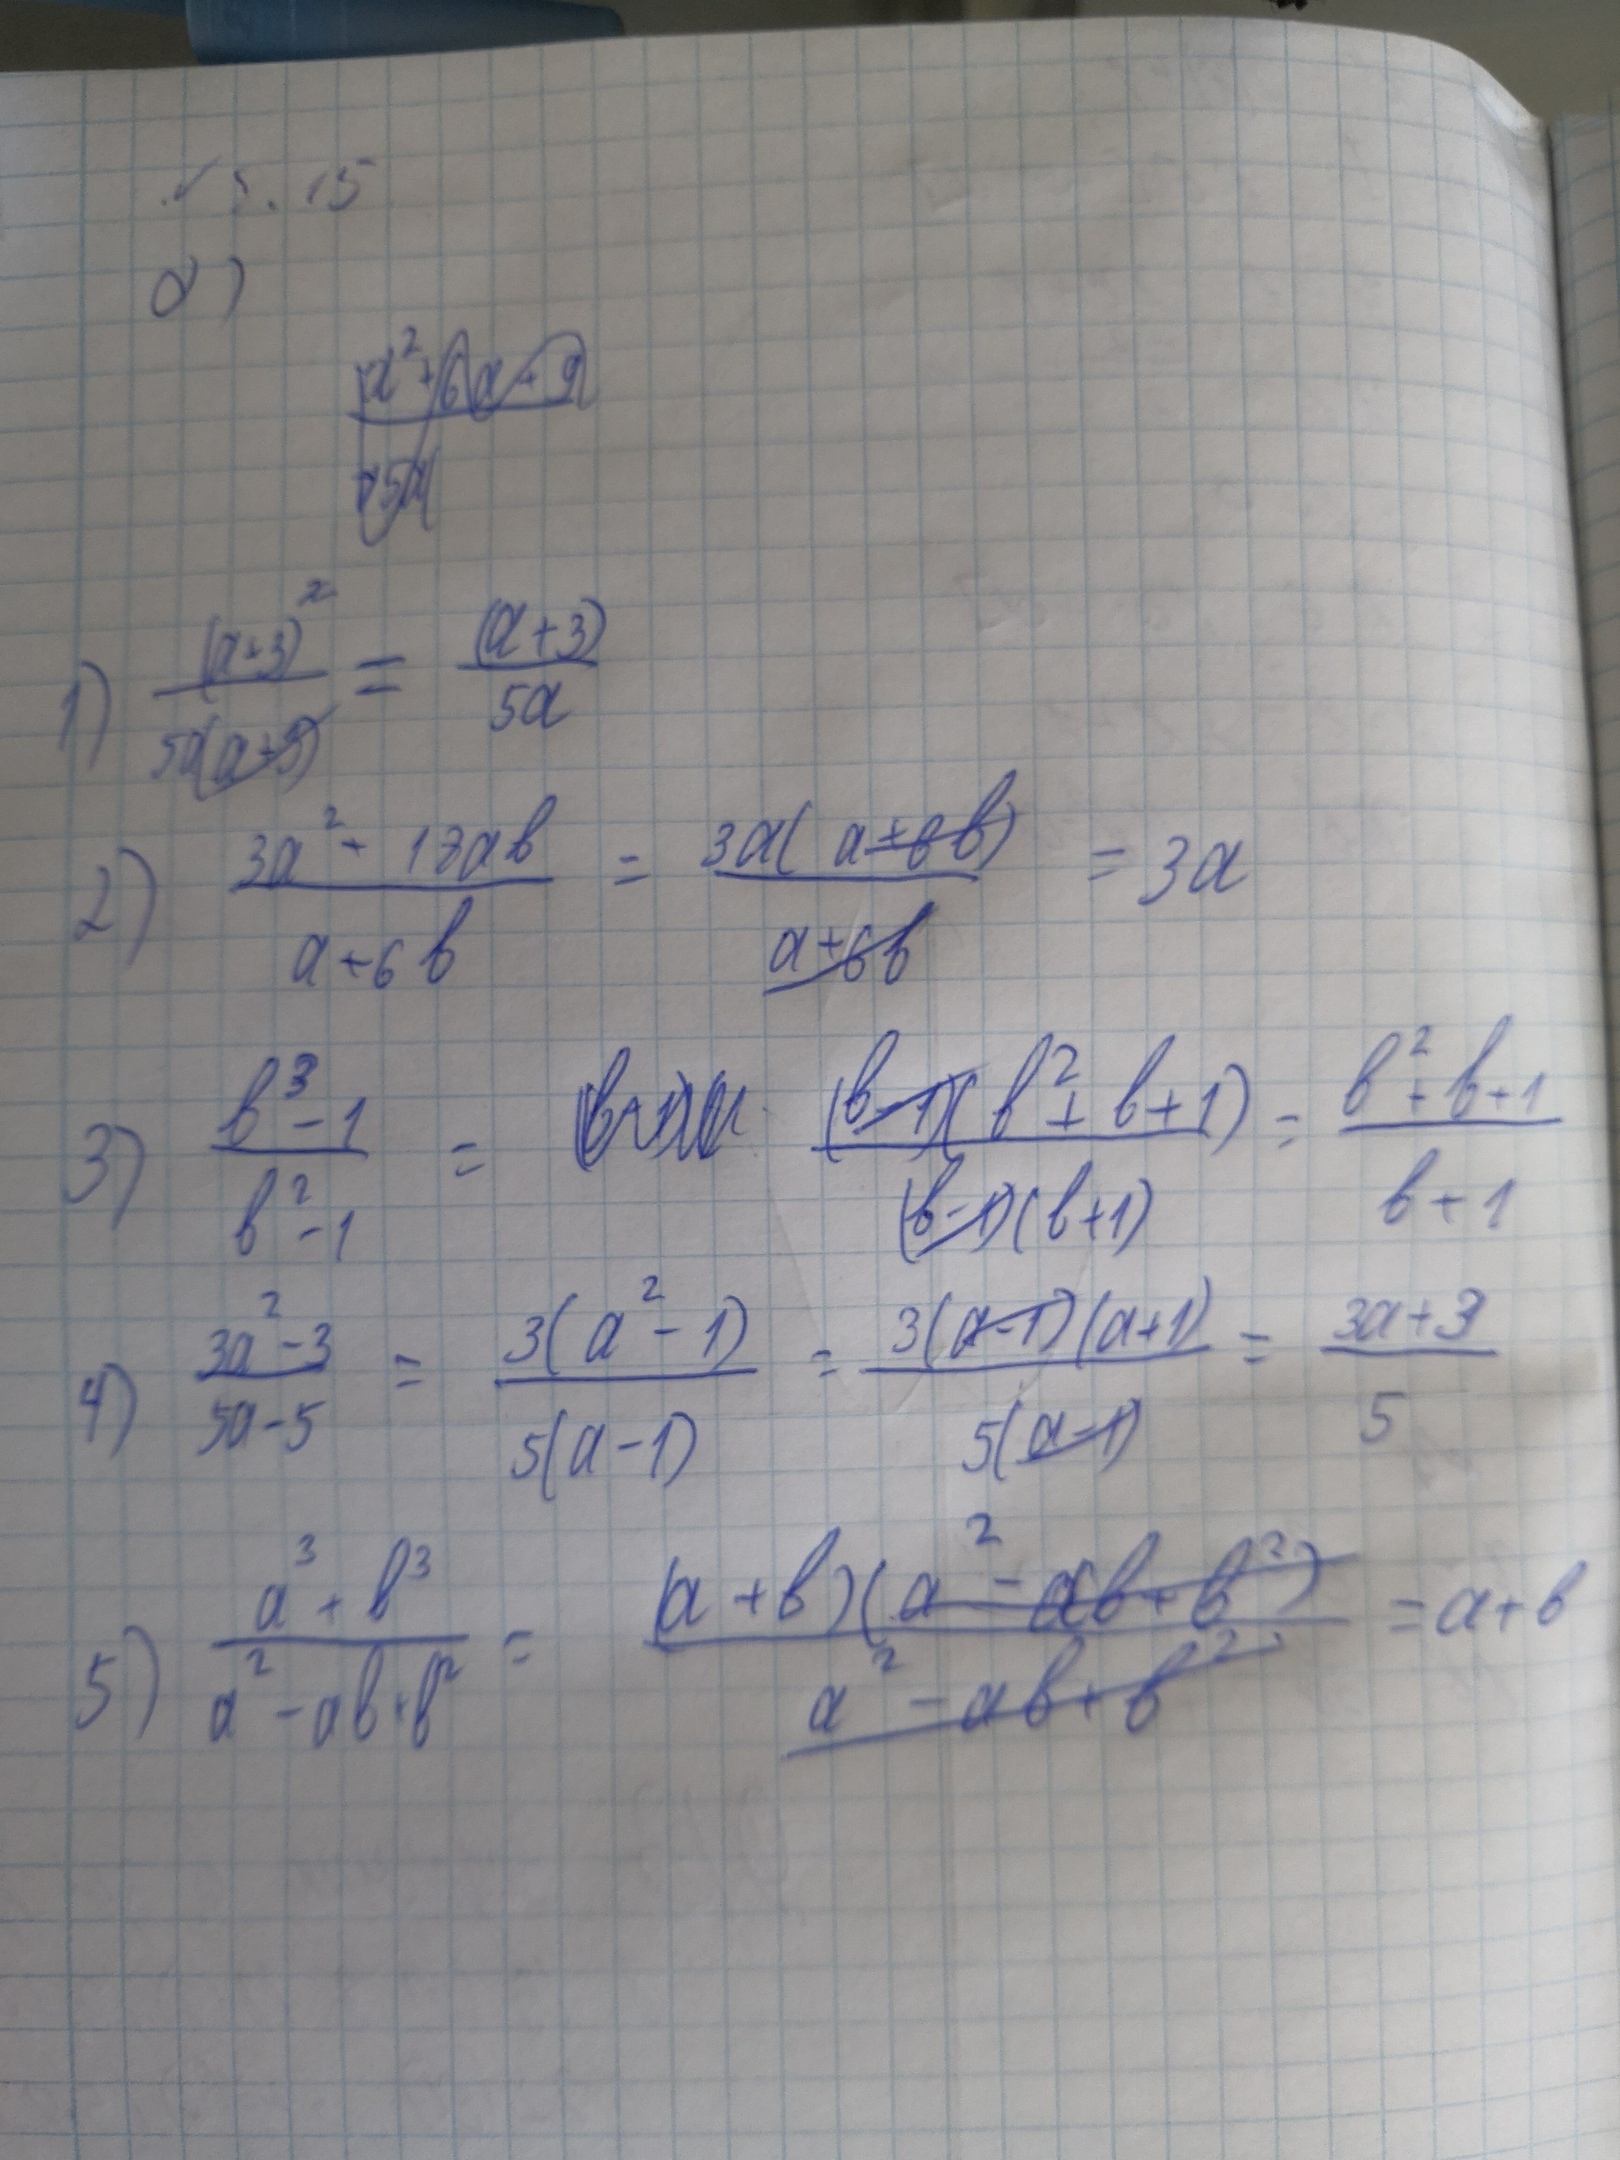 5.15
a)
1) (a+3)² / 5a(a+3) = (a+3) / 5a
2) 3a² + 18ab / a+6b = 3a(a+6b) / a+6b = 3a
3) b³-1 / b²-1 = (b-1)(b²+b+1) / (b-1)(b+1) = b²+b+1 / b+1
4) 3a²-3 / 5a-5 = 3(a²-1) / 5(a-1) = 3(a-1)(a+1) / 5(a-1) = 3a+3 / 5
5) a³+b³ / a²-ab+b² = (a+b)(a²-ab+b²) / a²-ab+b² = a+b